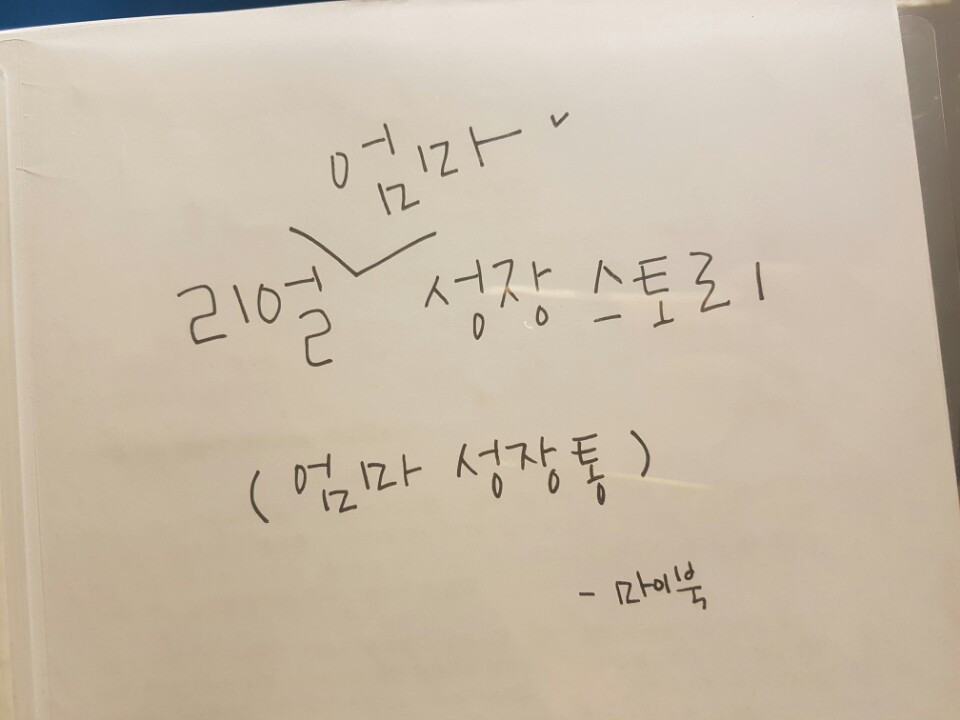 엄마 ✓
리얼 성장 스토리
( 엄마 성장통 )
- 마이북